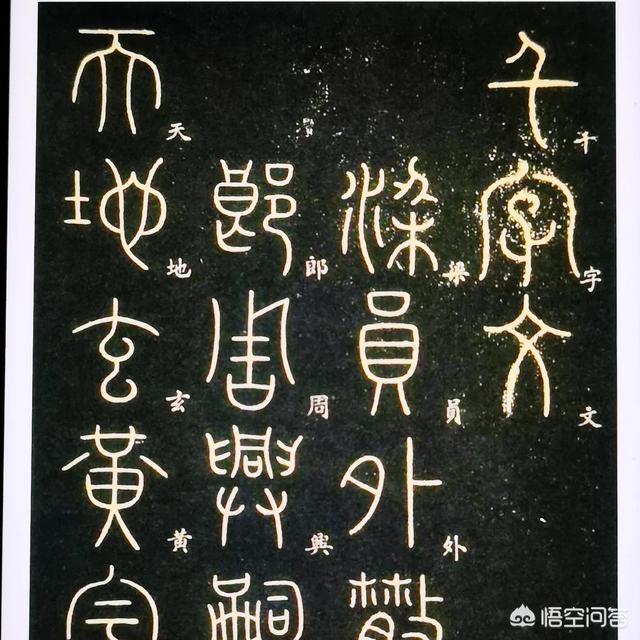 千字文
梁員外散
郎周興嗣
天地玄黃宇
悟空问答